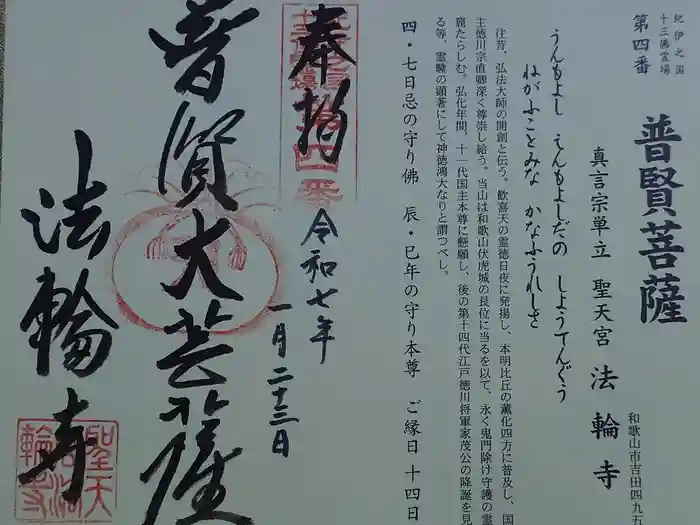 紀伊之国
十三佛霊場
第四番
普賢菩薩
真言宗単立 聖天宮 法輪寺
和歌山市吉田四九五
うんもよし えんもよしだの しようてんぐう
ねがふことみな かなふうれしさ
往昔、弘法大師の開創と伝う。歓喜天の霊徳日夜に発揚し、本明比丘の薫化四方に普及し、国
主徳川宗直卿深く尊崇し給う。当山は和歌山伏虎城の艮位に当るを以て、永く鬼門除け守護の霊
窟たらしむ。弘化年間、十一代国主本尊に懸願し、後の第十四代江戸徳川将軍家茂公の降誕を見
る等、霊験の顕著にして神徳鴻大なりと謂つべし。
四・七日忌の守り佛 辰・巳年の守り本尊 ご縁日 十四日
奉拝
令和七年
一月二十三日
普賢大菩薩
法輪寺